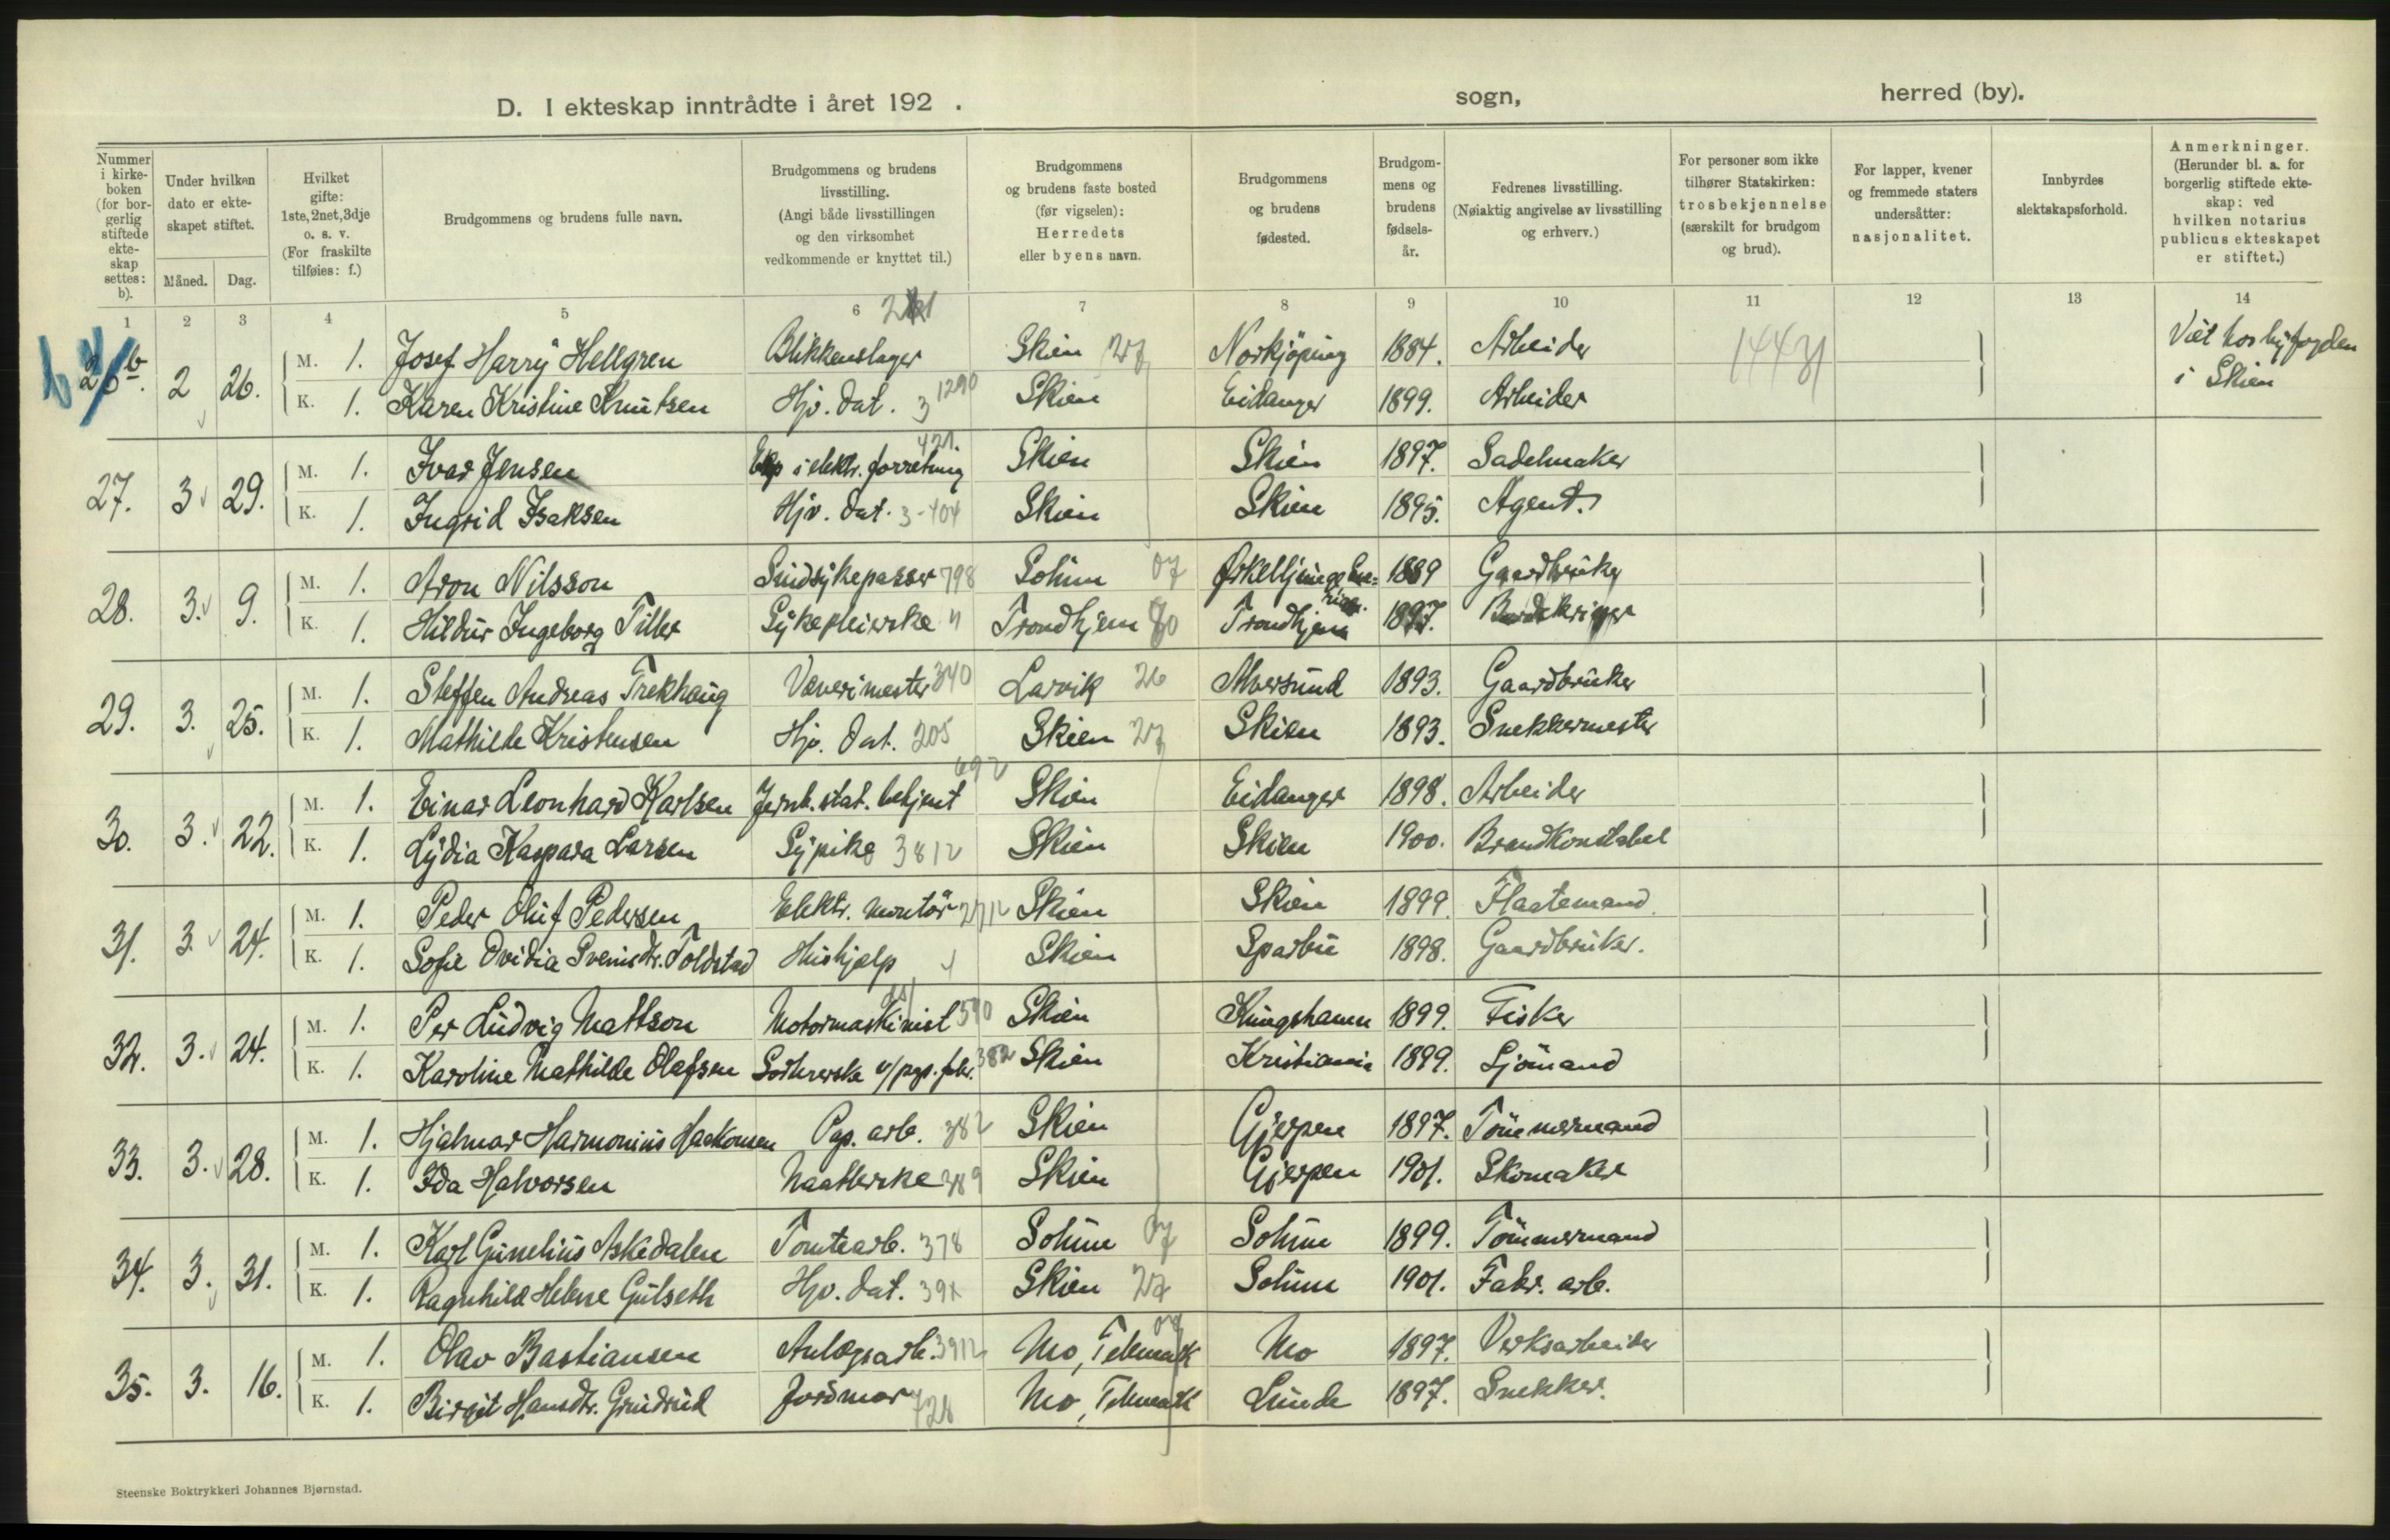 D. I ekteskap inntrådte i året 192 .
sogn,
herred (by).
Nummer i kirkeboken (for borgerlig stiftede ekteskap settes: b).
Under hvilken dato er ekteskapet stiftet.
Måned. Dag.
Hvilket gifte: 1ste, 2net, 3dje o. s. v. (For fraskilte tilføies: f.)
Brudgommens og brudens fulle navn.
Brudgommens og brudens livsstilling. (Angi både livsstillingen og den virksomhet vedkommende er knyttet til.)
Brudgommens og brudens faste bosted (før vigselen): Herredets eller byens navn.
Brudgommens og brudens fødested.
Brudgommens og brudens fødselsår.
Fedrenes livsstilling. (Nøiaktig angivelse av livsstilling og erhverv.)
For personer som ikke tilhører Statskirken: trosbekjennelse (særskilt for brudgom og brud).
For lapper, kvener og fremmede staters undersåtter: nasjonalitet.
Innbyrdes slektskapsforhold.
Anmerkninger. (Herunder bl. a. for borgerlig stiftede ekteskap: ved hvilken notarius publicus ekteskapet er stiftet.)
1 2 3 4 5 6 7 8 9 10 11 12 13 14
2 26. M. 1. Josef Harry Hellgren Blikkenslager Skien 27 Norkjöping 1884. Arbeider 14431 Viet hos byfogden
K. 1. Karen Kristine Knutsen Hjv. dat. 3 1290 Skien Eidanger 1899. Arbeider i Skien
27. 3 29. M. 1. Ivar Jensen Exp i elektr. forretning 421. Skien Skien 1897. Sadelmaker
K. 1. Ingrid Isaksen Hjv. dat. 3-404 Skien Skien 1895. Agent.
28. 3. 9. M. 1. Aron Nilsson Sindsykepasser 798 Solum 07 Ørkelljunga 1889 Gaardbruker
K. 1. Hildur Ingeborg Tiller Sykepleierske " Trondhjem 80 Trondhjem 1897.
29. 3. 25. M. 1. Steffen Andreas Trekhaug Væverimester 340 Larvik 26 Alversund 1893. Gaardbruker
K. 1. Mathilde Kristensen Hjv. dat. 205 Skien 27 Skien 1893. Snekkermester
30. 3. 22. M. 1. Einar Leonhard Karlsen Jernb. stat. betjent 692 Skien Eidanger 1898. Arbeider
K. 1. Lydia Kaspara Larsen Sypike 3812 Skien Skien 1900. Brandkonstabel
31. 3. 24. M. 1. Peder Oluf Pedersen Elektr. montör 2712 Skien Skien 1899. Flaatemand.
K. 1. Sofie Ovidia Svensdtr. Toldstad Hushjælp Skien Sparbu 1898. Gaardbruker.
32. 3. 24. M. 1. Per Ludvig Mattson Motormaskinist 590 Skien Kungshamn 1899. Fisker
K. 1. Karoline Mathilde Olafsen Sorterske v/pap. fabr. 382 Skien Kristiania 1899. Sjömand
33. 3. 28. M. 1. Hjalmar Harmonius Haakonsen Pap. arb. 382 Skien Gjerpen 1897. Tömmermand
K. 1. Ida Halvorsen Naatlerske 389 Skien Gjerpen 1901. Skomaker
34. 3. 31. M. 1. Karl Gunelius Askedalen Tomtearb. 378 Solum 07 Solum 1899. Tömmermand
K. 1. Ragnhild Helene Gulseth Hjv. dat. Skien 27 Solum 1901. Fabr. arb.
35. 3. 16. M. 1. Olav Bastiansen Anlægsarb. 3912 Mo, Telemark Mo 1897. Verksarbeider
K. 1. Birgit Hansdtr. Grudrud Jordmor 728 Mo, Telemark Lunde 1897. Snekker.
Steenske Boktrykkeri Johannes Bjørnstad.